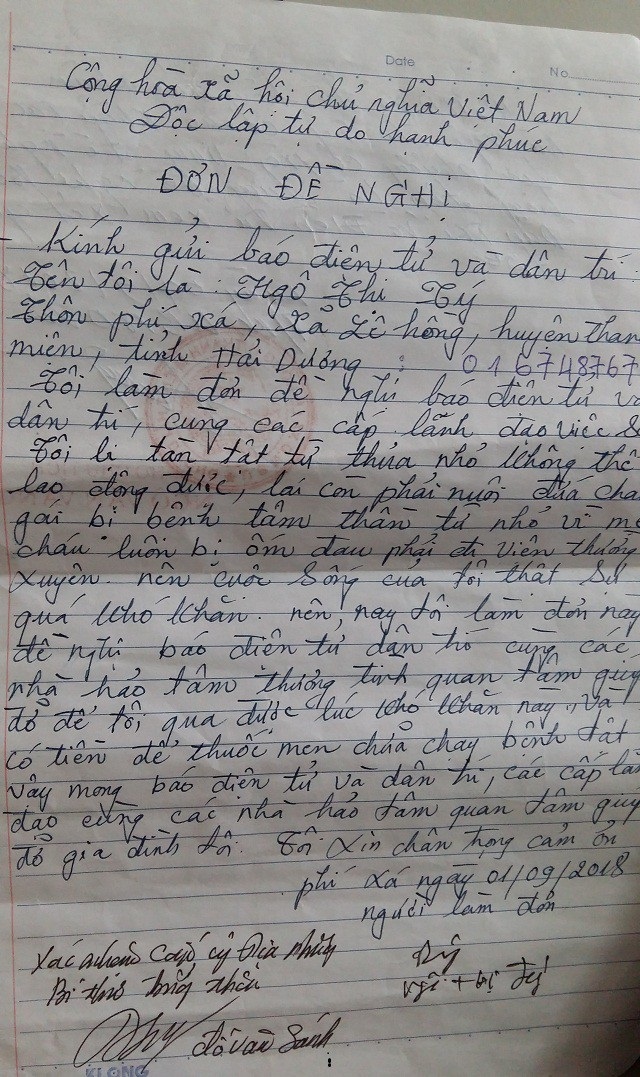 Date No
Cộng hòa xã hội chủ nghĩa Việt Nam
Độc lập tự do hạnh phúc
ĐƠN ĐỀ NGHỊ
Kính gửi báo điện tử và dân trí
Tên tôi là: Ngô Thị Tý
Thôn phí xá, xã Lê hồng, huyện than
miện, tỉnh Hải Dương : 016748767
Tôi làm đơn đề nghị báo điện tử và
dân trí, cùng các cấp lãnh đạo việc
Tôi bị tàn tật từ thủa nhỏ không thể
lao động được, lại còn phải nuôi đứa chá
gái bị bệnh tâm thần từ nhỏ vì mẹ
cháu luôn bị ốm đau phải đi viện thường
xuyên. nên cuộc sống của tôi thật sự
quá khó khăn. nên, nay tôi làm đơn này
đề nghị báo điện tử dân trí cùng các
nhà hảo tâm thương tình quan tâm giúp
đỡ để tôi qua được lúc khó khăn này. và
có tiền để thuốc men chữa chạy bệnh tật
vậy mong báo điện tử và dân trí, các cấp lãn
đạo cùng các nhà hảo tâm quan tâm giúp
đỡ gia đình tôi. Tôi xin chân trọng cảm ơn
phí xá ngày 01/09/2018
người làm đơn
Xác nhận
Bí thư trưởng thôn
Tý
Đỗ Văn Sánh
KLONG